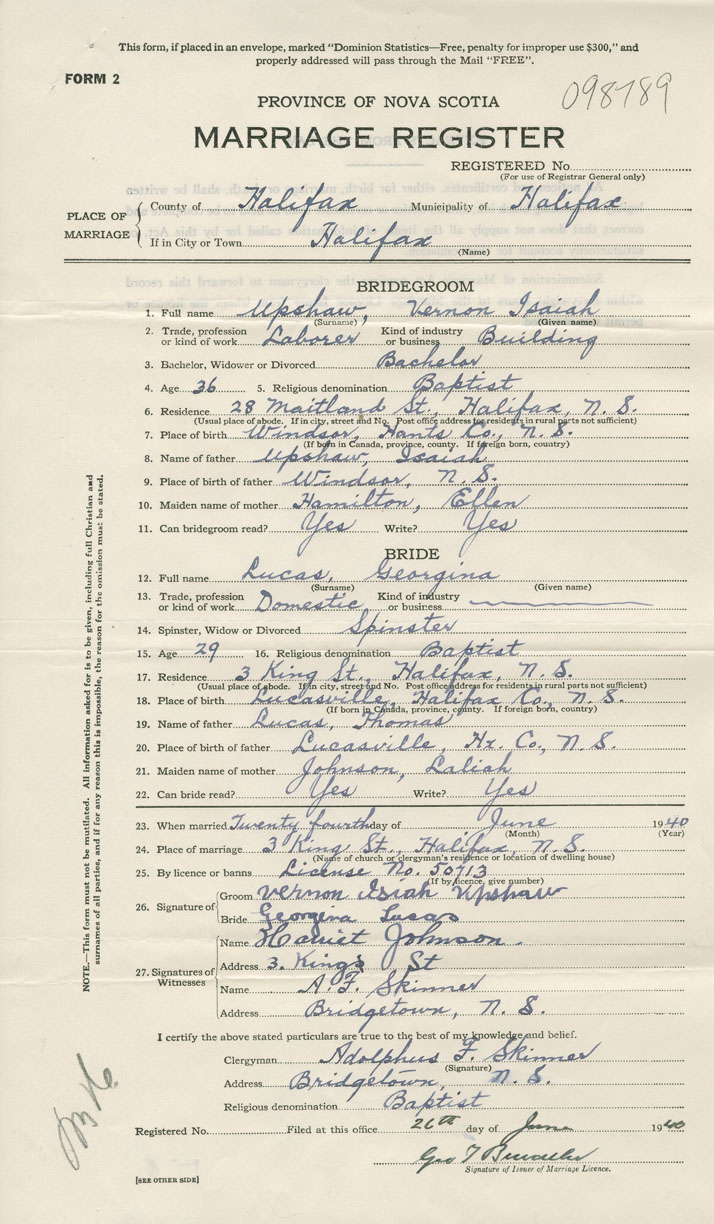 This form, if placed in an envelope, marked "Dominion Statistics—Free, penalty for improper use $300," and
properly addressed will pass through the Mail "FREE".
FORM 2
098789
PROVINCE OF NOVA SCOTIA
MARRIAGE REGISTER
REGISTERED No.
(For use of Registrar General only)
PLACE OF MARRIAGE
County of Halifax Municipality of Halifax
If in City or Town Halifax
(Name)
BRIDEGROOM
1. Full name Upshaw, Vernon Isaiah
(Surname) (Given name)
2. Trade, profession or kind of work Laborer Kind of industry or business Building
3. Bachelor, Widower or Divorced Bachelor
4. Age 36 5. Religious denomination Baptist
6. Residence 28 Maitland St., Halifax, N. S.
(Usual place of abode. If in city, street and No. Post office address for residents in rural parts not sufficient)
7. Place of birth Windsor, Hants Co., N. S.
(If born in Canada, province, county. If foreign born, country)
8. Name of father Upshaw, Isaiah
9. Place of birth of father Windsor, N. S.
10. Maiden name of mother Hamilton, Ellen
11. Can bridegroom read? Yes Write? Yes
BRIDE
12. Full name Lucas, Georgina
(Surname) (Given name)
13. Trade, profession or kind of work Domestic Kind of industry or business
14. Spinster, Widow or Divorced Spinster
15. Age 29 16. Religious denomination Baptist
17. Residence 3 King St., Halifax, N. S.
(Usual place of abode. If in city, street and No. Post office address for residents in rural parts not sufficient)
18. Place of birth Lucasville, Halifax Co., N. S.
(If born in Canada, province, county. If foreign born, country)
19. Name of father Lucas, Thomas
20. Place of birth of father Lucasville, Hx. Co., N. S.
21. Maiden name of mother Johnson, Laliah
22. Can bride read? Yes Write? Yes
23. When married Twenty fourth day of June 1940
(Month) (Year)
24. Place of marriage 3 King St., Halifax, N. S.
(Name of church or clergyman's residence or location of dwelling house)
25. By licence or banns License No. 50713
(If by licence, give number)
26. Signature of
Groom Vernon Isiah Upshaw
Bride Georgina Lucas
27. Signatures of Witnesses
Name Harriet Johnson
Address 3. King's St
Name A. F. Skinner
Address Bridgetown, N. S.
I certify the above stated particulars are true to the best of my knowledge and belief.
Clergyman Adolphus F. Skinner
(Signature)
Address Bridgetown, N. S.
Religious denomination Baptist
Registered No. Filed at this office 26th day of June 1940
Geo T
Signature of Issuer of Marriage Licence.
[SEE OTHER SIDE]
NOTE.—This form must not be mutilated. All information asked for is to be given, including full Christian and
surnames of all parties, and if for any reason this is impossible, the reason for the omission must be stated.